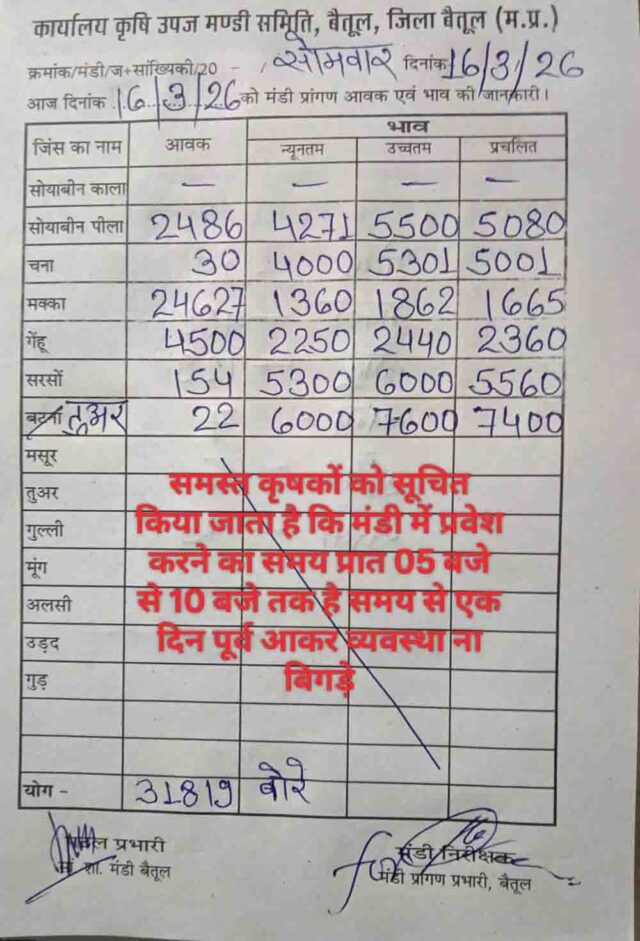 कार्यालय कृषि उपज मण्डी समिति, बैतूल, जिला बैतूल (म.प्र.)
क्रमांक/मंडी/ज+सांख्यिकी/20 - , सोमवार दिनांक 16/3/26
आज दिनांक 16/3/26 को मंडी प्रांगण आवक एवं भाव की जानकारी।
जिंस का नाम आवक भाव
न्यूनतम उच्चतम प्रचलित
सोयाबीन काला — — — —
सोयाबीन पीला 2486 4271 5500 5080
चना 30 4000 5301 5001
मक्का 24627 1360 1862 1665
गेंहू 4500 2250 2440 2360
सरसों 154 5300 6000 5560
बटना तुअर 22 6000 7600 7400
मसूर
तुअर
गुल्ली
मूंग
अलसी
उड़द
गुड़
समस्त कृषकों को सूचित
किया जाता है कि मंडी में प्रवेश
करने का समय प्रात 05 बजे
से 10 बजे तक है समय से एक
दिन पूर्व आकर व्यवस्था ना
बिगड़े
योग - 31819 बोरे
प्रभारी
शा. मंडी बैतूल
मंडी निरीक्षक
मंडी प्रांगण प्रभारी, बैतूल